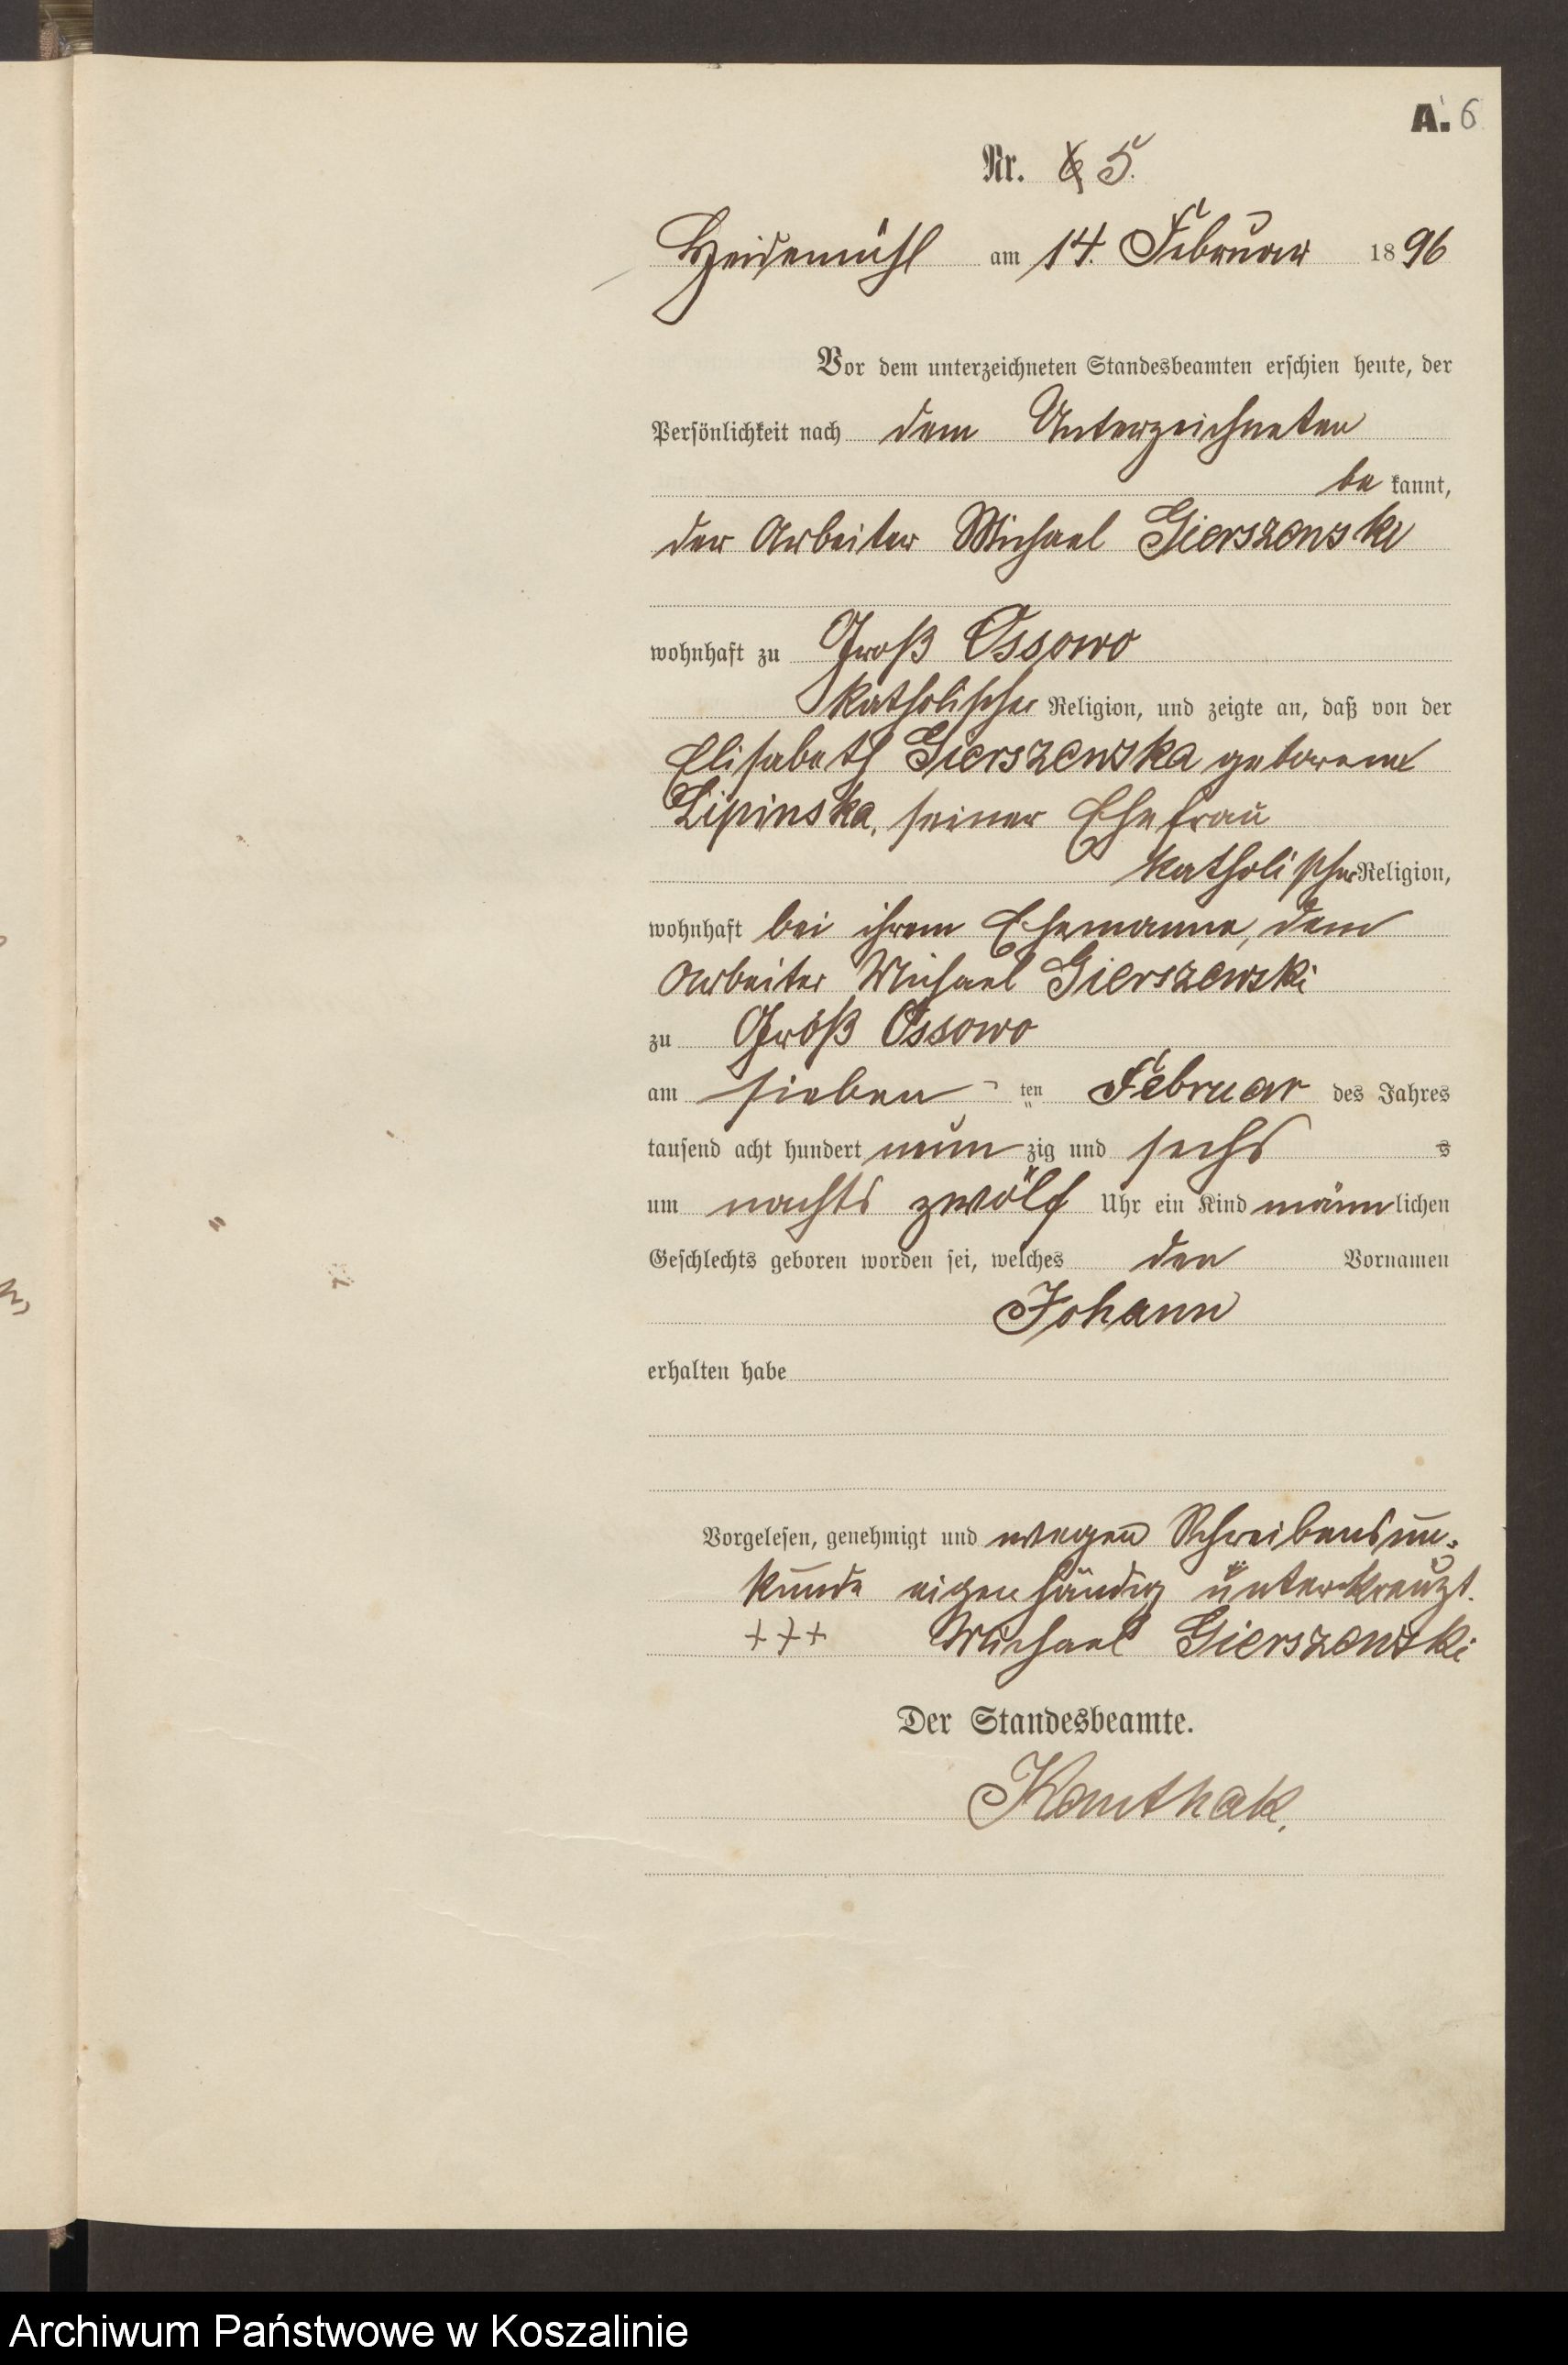 A. 6
Nr. 5.
Heidemühl am 14. Februar 1896
Vor dem unterzeichneten Standesbeamten erschien heute, der
Persönlichkeit nach dem Unterzeichneten
be kannt,
der Arbeiter Michael Gierszewski
wohnhaft zu Groß Ossowo
katholischer Religion, und zeigte an, daß von der
Elisabeth Gierszewska geborene
Lipinska, seiner Ehefrau
katholischer Religion,
wohnhaft bei ihrem Ehemanne, dem
Arbeiter Michael Gierszewski
zu Groß Ossowo
am sieben ten Februar des Jahres
tausend acht hundert neun zig und sechs
um nachts zwölf Uhr ein Kind männlichen
Geschlechts geboren worden sei, welches den Vornamen
Johann
erhalten habe
Vorgelesen, genehmigt und wegen Schreibensun-
kunde eigenhändig unterkreuzt.
+++ Michael Gierszewski
Der Standesbeamte.
Kanthak.
Archiwum Państwowe w Koszalinie